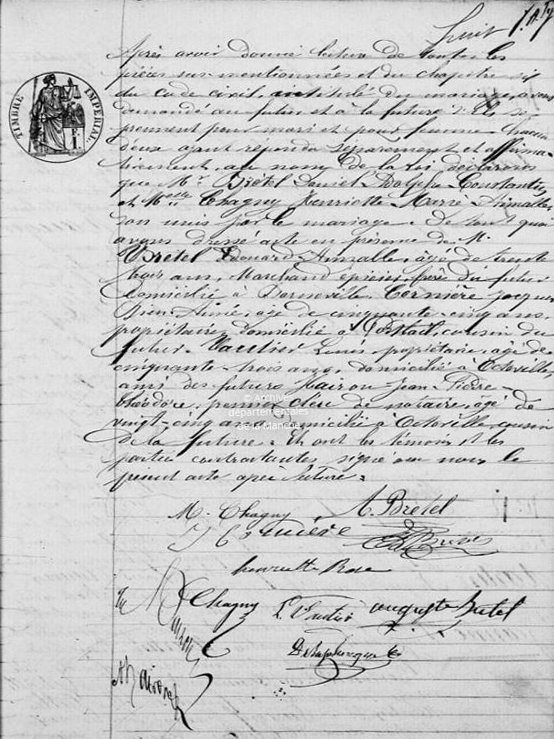 huit
TIMBRE IMPERIAL
Après avoir donné lecture de toutes les
pièces sus mentionnées et du chapitre six
du code civil, intitulé du mariage, avons
demandé au futur et à la future s'ils se
prennent pour mari et pour femme, chacun
d'eux ayant répondu séparément et affirma-
tivement, au nom de la loi, déclarons
que Mr Bretel Daniel Adolphe Constantin
et Melle Chagny Henriette Marie Aimable
son unis par le mariage. De tout quoi
avons dressé acte en présence de M.
Bretel Edouard Aimable, âgé de trente
trois ans, Marchand épicier, frère du futur
domicilié à Barneville, Jacques
Bien Aimé, âgé de cinquante-cinq ans,
propriétaire, domicilié à cousin du
futur. Vautier Louis propriétaire, âgé de
cinquante-trois ans, domicilié à Octeville,
ami des futurs Jean Pierre
Théodore, premier clerc de notaire, âgé de
vingt-cinq ans domicilié à Octeville, cousin
de la future. Et ont les témoins et les
parties contractantes signé avec nous le
présent acte après lecture.
© Archives
départementales
de la Manche
M. Chagny A. Bretel
Bretel
henriette
Chagny L. Vautier auguste bretel